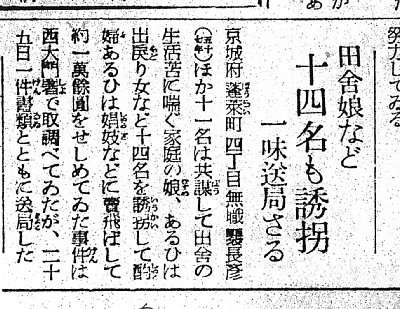 発力してゐる
田舎娘など
十四名も誘拐
一味送局さる
京城府蓬萊町四丁目無職裵長彦
ほか十一名は共謀して田舎の
生活苦に喘ぐ家庭の娘、あるひは
出戻り女など十四名を誘拐して酌
婦あるひは娼妓などに賣飛ばして
約一萬餘圓をせしめてゐた事件は
西大門署で取調べてゐたが、二十
五日一件書類とともに送局した